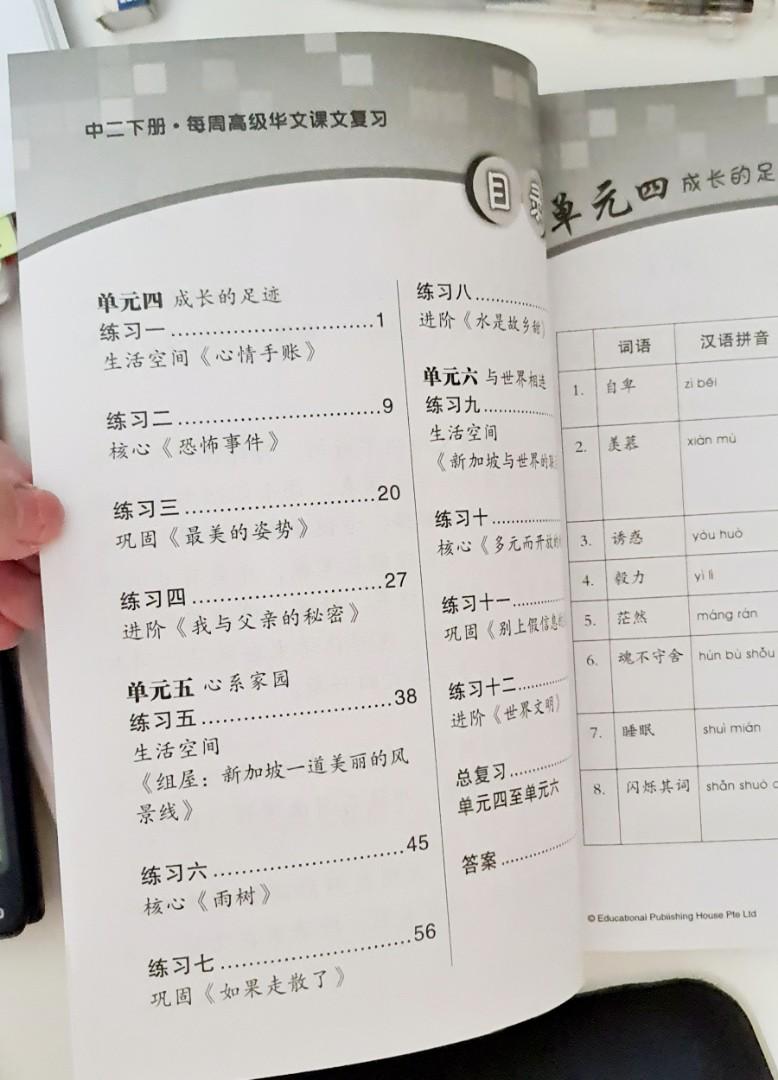 中二下册·每周高级华文课文复习
目录
单元四 成长的足迹
练习一..............................1
生活空间《心情手账》
练习二..............................9
核心《恐怖事件》
练习三............................20
巩固《最美的姿势》
练习四............................27
进阶《我与父亲的秘密》
单元五 心系家园
练习五............................38
生活空间
《组屋：新加坡一道美丽的风
景线》
练习六............................45
核心《雨树》
练习七............................56
巩固《如果走散了》
练习八..........
进阶《水是故乡甜》
单元六 与世界相连
练习九............
生活空间
《新加坡与世界的
练习十............
核心《多元而开放的
练习十一.........
巩固《别上假信息的
练习十二.........
进阶《世界文明》
总复习............
单元四至单元六
答案............
单元四 成长的足
词语 汉语拼音
1. 自卑 zì bēi
2. 羡慕 xiàn mù
3. 诱惑 yòu huò
4. 毅力 yì lì
5. 茫然 máng rán
6. 魂不守舍 hún bù shǒu
7. 睡眠 shuì mián
8. 闪烁其词 shǎn shuò
© Educational Publishing House Pte Ltd